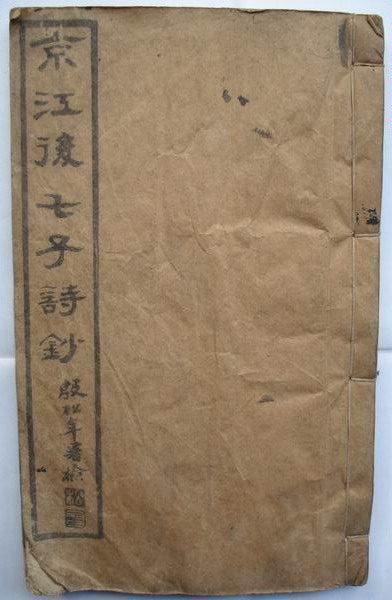 京江後七子詩鈔
殷松年署檢